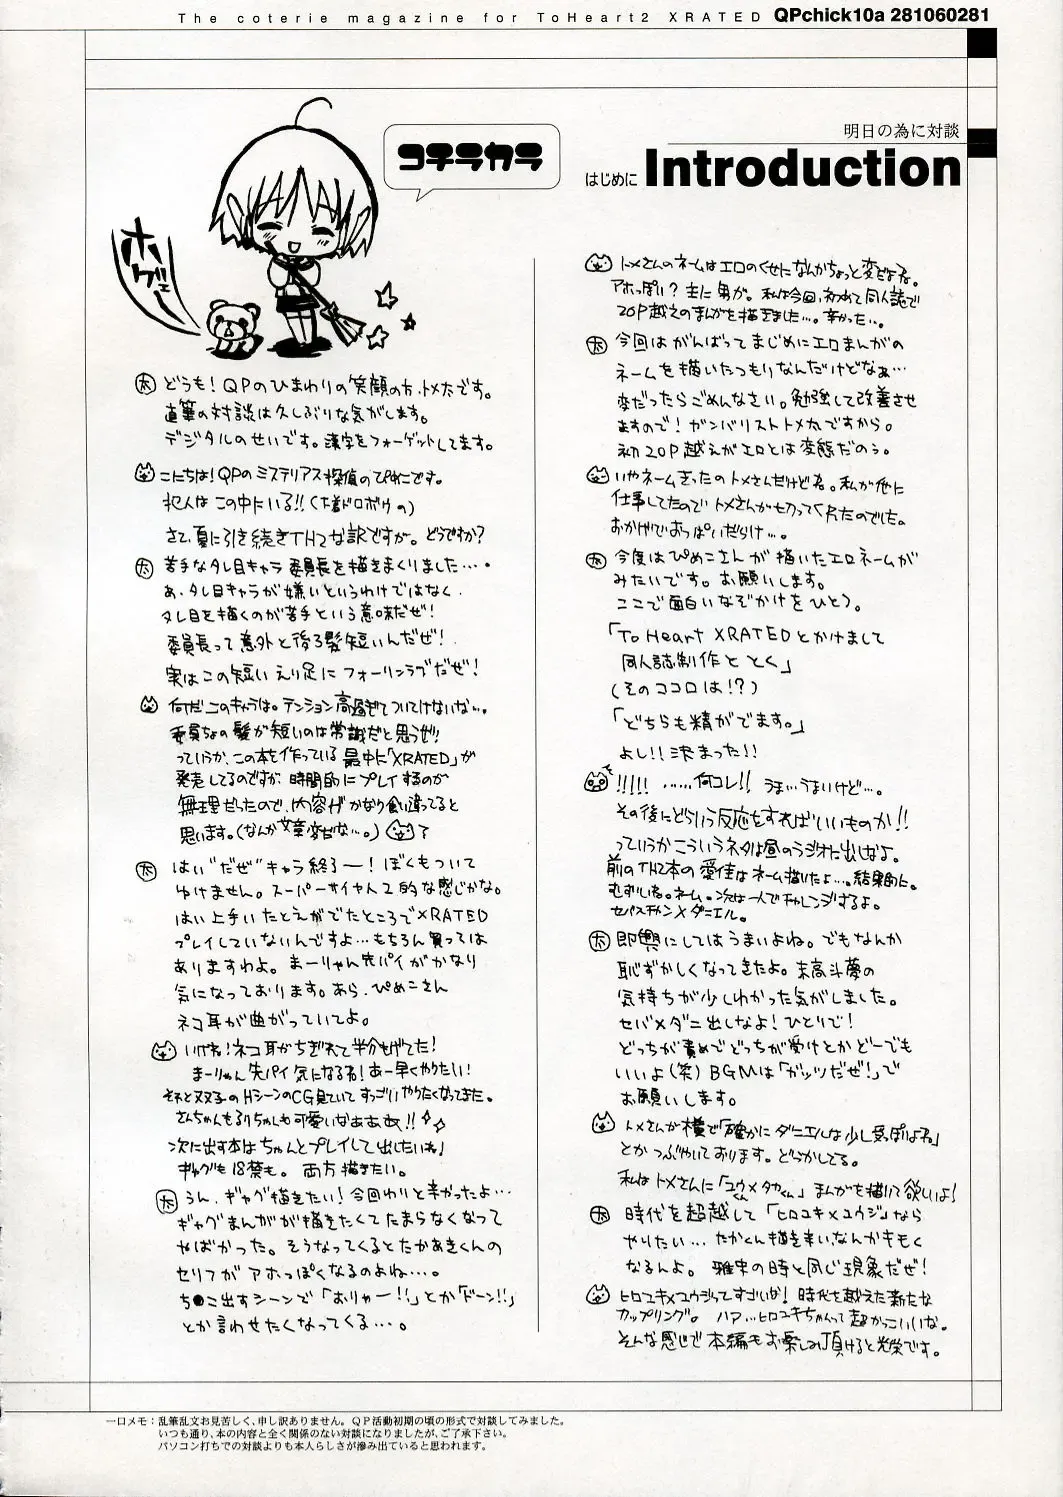 The coterie magazine for ToHeart2 XRATED QPchick10a 281060281
明日の為に対談
はじめに Introduction
コチラカラ
ホゲェー
太 どうも！QPのひまわりの笑顔の方、トメ太です。
直筆の対談は久しぶりな気がします。
デジタルのせいです。漢字をフォーゲットしてます。
こにちは！QPのミステリアス探偵のぴめこです。
犯人はこの中にいる!!(下着ドロボウの)
さて、夏に引き続きTH2な訳ですが。どうですか？
太 苦手なタレ目キャラ委員長を描きまくりました・・・・
あ、タレ目キャラが嫌いというわけではなく、
タレ目を描くのが苦手という意味だぜ！
委員長って意外と後ろ髪短いんだぜ！
実はこの短いえり足にフォーリンラブだぜ！
何だこのキャラは。テンション高過ぎてついてけないな…。
委員ちょの髪が短いのは常識だと思うぜ!!
っていうか、この本を作っている最中に「XRATED」が
発売してるのですが、時間的にプレイするのが
無理だったので、内容がかなり食い違ってると
思います。(なんか文章変だな…。)
太 はい"だぜ"キャラ終了ー！ぼくもついて
ゆけません。スーパーサイヤ人2的な感じかな。
はい上手いたとえがでたところでXRATED
プレイしていないんですよ…もちろん買っては
ありますわよ。まーりゃん先パイがかなり
気になっております。あら、ぴめこさん
ネコ耳が曲がっていてよ。
いけね！ネコ耳がちぎれて半分もげてた！
まーりゃん先パイ気になるね！あー早くやりたい！
それと双子のHシーンのCG見ていてすっごいやりたくなってきた。
さんちゃんもるりちゃんも可愛いなぁぁぁぁ!!
次に出す本はちゃんとプレイして出したいね」
ギャグも18禁も。両方描きたい。
太 うん、ギャグ描きたい！今回わりと辛かったよ…
ギャグまんがが描きたくてたまらなくなって
やばかった。そうなってくるとたかあきくんの
セリフがアホっぽくなるのよね…。
ち●こ出すシーンで「おりゃー!!」とか「ドーン!!」
とか言わせたくなってくる…。
トメさんのネームはエロのくせになんかちょっと変だよね。
アホっぽい？主に男が。私は今回、初めて同人誌で
20P越えのまんがを描きました…。辛かった…。
太 今回はがんばってまじめにエロまんがの
ネームを描いたつもりなんだけどなぁ…
変だったらごめんなさい。勉強して改善させ
ますので！ガンバリストトメ太ですから。
初20P越えがエロとは変態だのぅ。
いやネームきったのトメさんだけどね。私が他に
仕事してたのでトメさんが切ってくれたのでした。
おかげでおっぱいだらけ…。
太 今度はぴめこさんが描いたエロネームが
みたいです。お願いします。
ここで面白いなぞかけをひとう。
「To Heart XRATEDとかけまして
同人誌制作ととく」
(そのココロは!?)
「どちらも精がでます。」
よし!!決まった!!
!!!!!……何コレ!!うま…うまいけど…。
その後にどういう反応をすればいいものか!!
っていうかこういうネタは昼のラジオに出しなよ。
前のTH2本の愛佳はネーム描いたよ…。結果的に。
むずいね。ネーム。次は一人でチャレンジするよ。
セバスチャン×ダニエル。
太 即興にしてはうまいよね。でもなんか
恥ずかしくなってきたよ。末高斗夢の
気持ちが少しわかった気がしました。
セバ×ダニ出しなよ！ひとりで！
どっちが責めでどっちが受けとかどーでも
いいよ(笑)BGMは「ガッツだぜ！」で
お願いします。
トメさんが横で「確かにダニエルは少し受っぽいよね」
とかつぶやいております。どうかしてる。
私はトメさんに「ユウくん×タカくん」まんがを描いて欲しいよ！
太 時代を超越して「ヒロユキ×ユウジ」なら
やりたい…たかくん描き辛い、なんかキモく
なるんよ。雅史の時と同じ現象だぜ！
ヒロユキ×ユウジってすごいな！時代を越えた新たな
カップリング。ハァ…ヒロユキちゃんって超かっこいいな。
そんな感じで本編もお楽しみ頂けると光栄です。
一口メモ：乱筆乱文お見苦しく、申し訳ありません。QP活動初期の頃の形式で対談してみました。
いつも通り、本の内容と全く関係のない対談になりましたが、ご了承下さい。
パソコン打ちでの対談よりも本人らしさが滲み出ていると思われます。